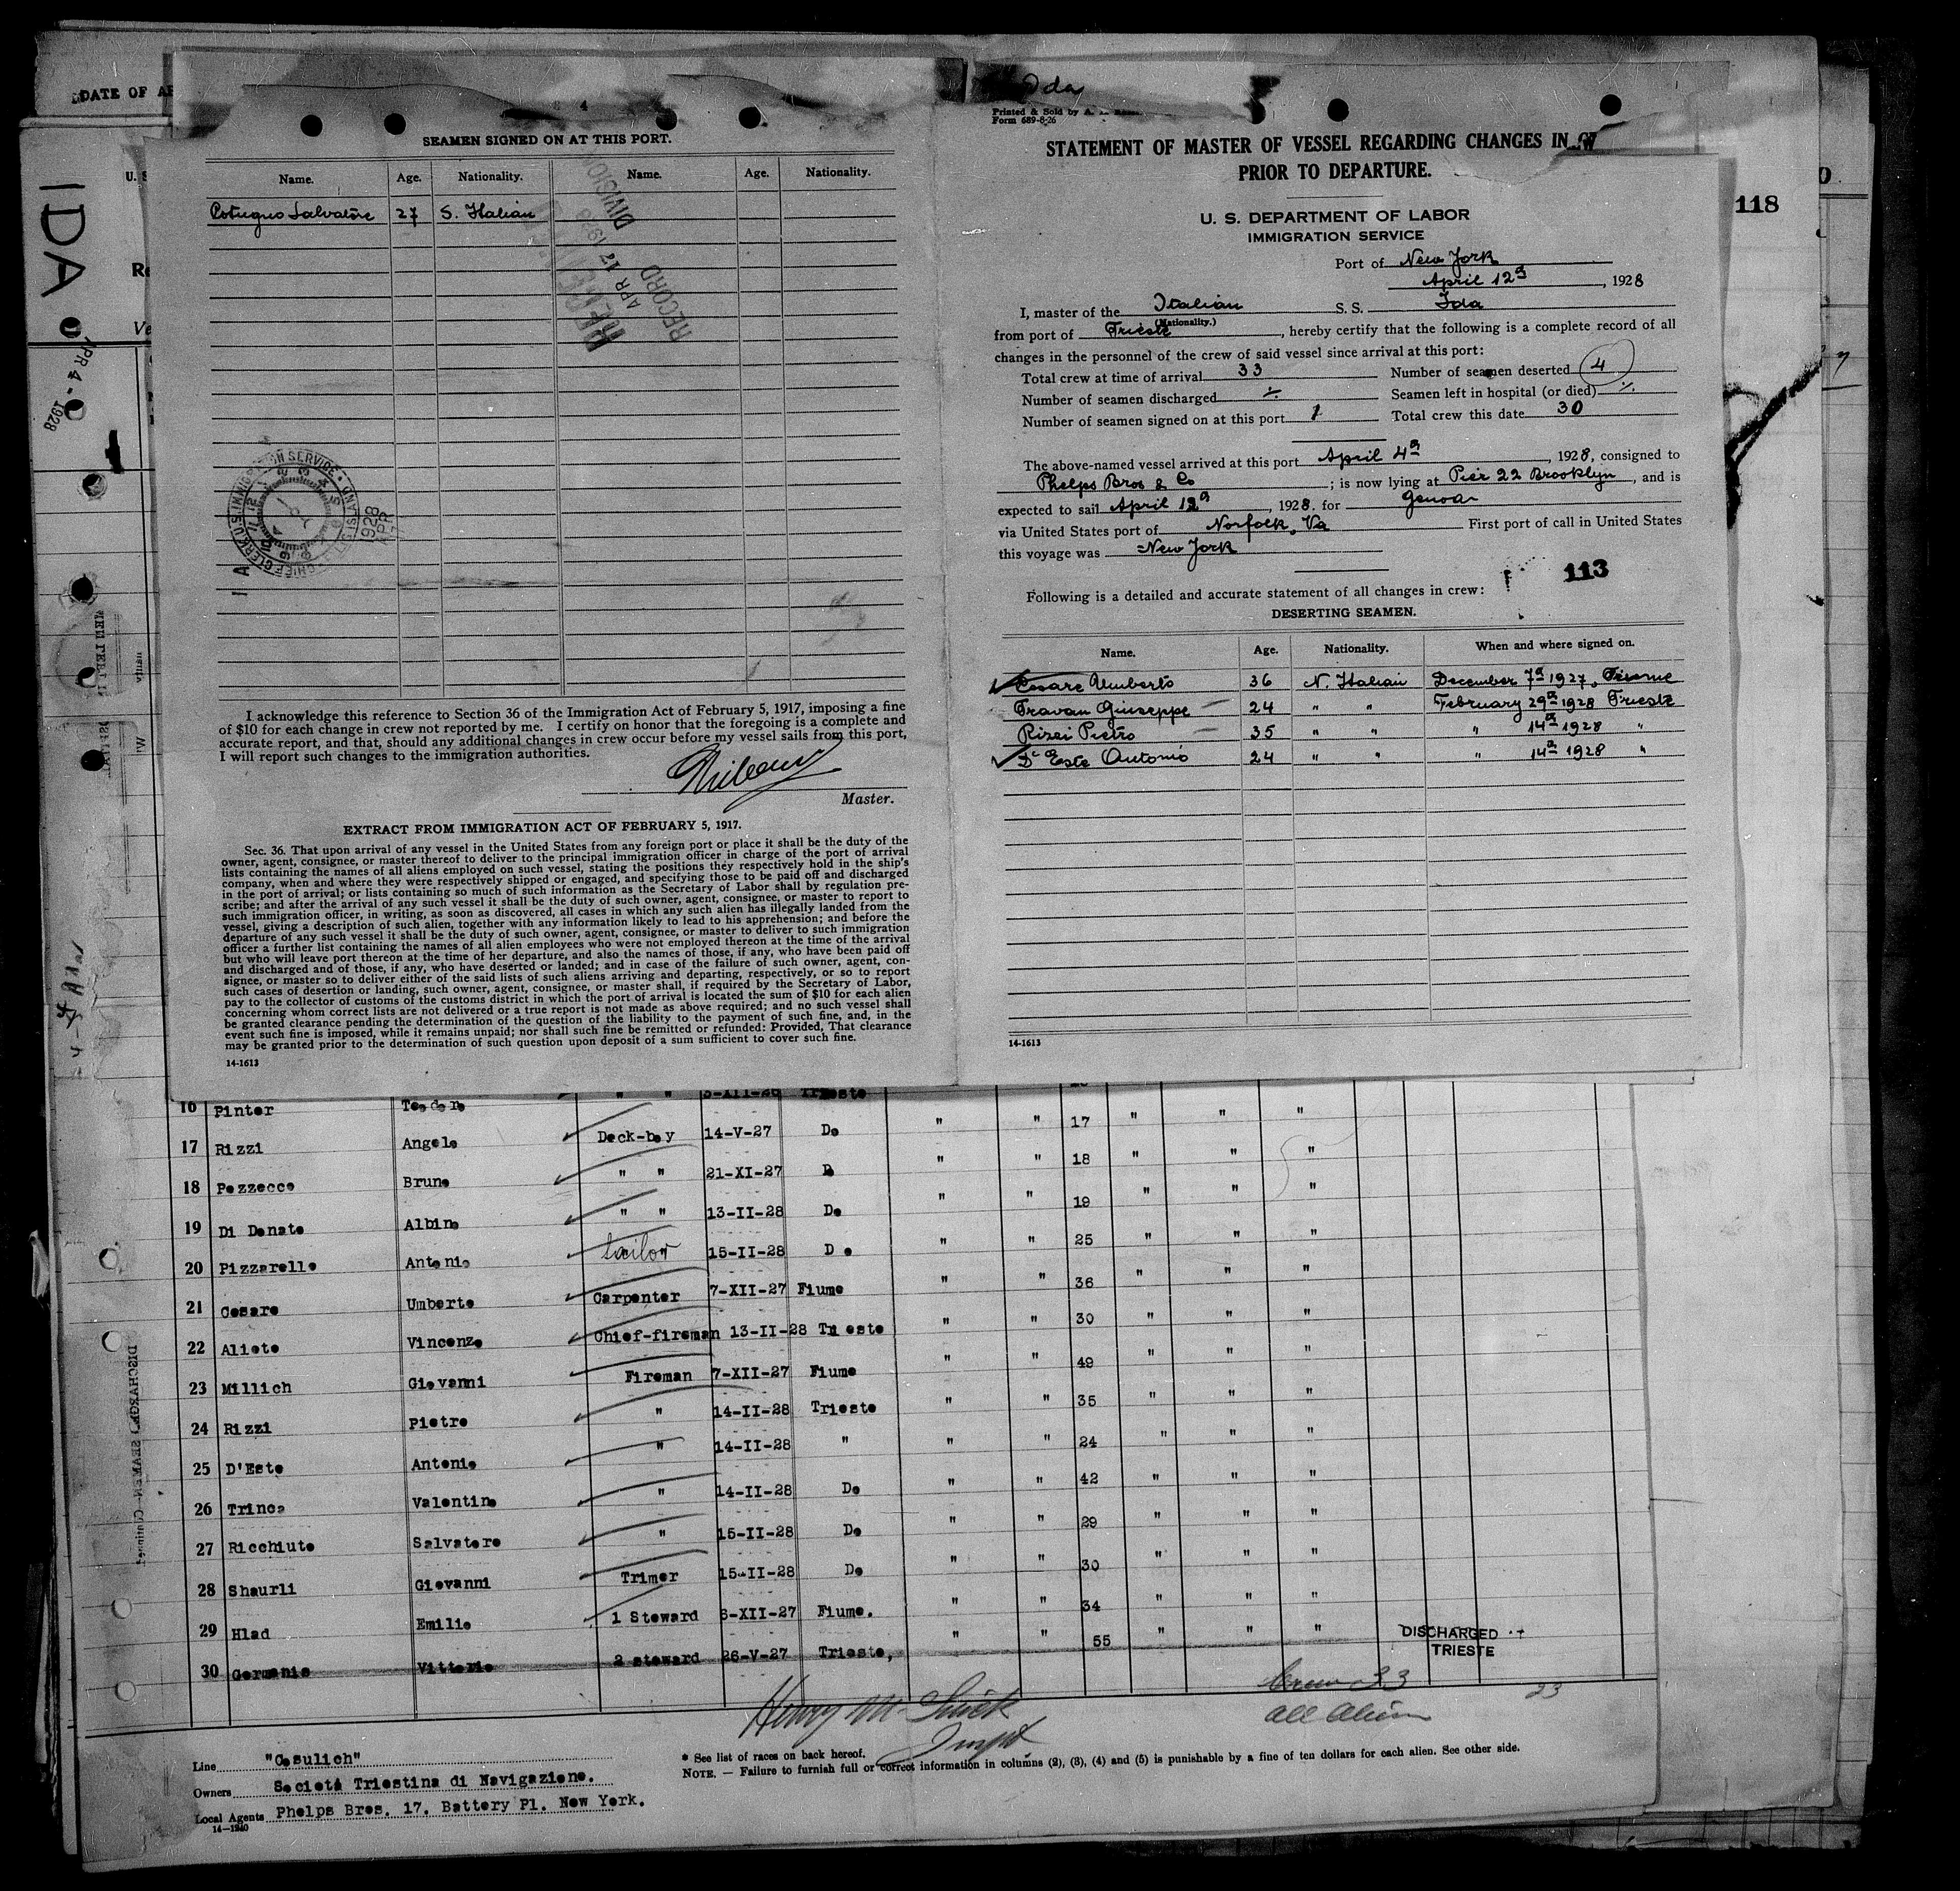 DATE OF AR
IDA
APR 4 - 1928
4
SEAMEN SIGNED ON AT THIS PORT.
Name. Age. Nationality. Name. Age. Nationality.
Cotugno Salvatore 27 S. Italian
RECEIVED
APR 12 1928
RECORD DIVISION
CHIEF CLERK U.S. IMMIGRATION SERVICE
1928
APR
I acknowledge this reference to Section 36 of the Immigration Act of February 5, 1917, imposing a fine
of $10 for each change in crew not reported by me. I certify on honor that the foregoing is a complete and
accurate report, and that, should any additional changes in crew occur before my vessel sails from this port,
I will report such changes to the immigration authorities.
Master.
EXTRACT FROM IMMIGRATION ACT OF FEBRUARY 5, 1917.
Sec. 36. That upon arrival of any vessel in the United States from any foreign port or place it shall be the duty of the
owner, agent, consignee, or master thereof to deliver to the principal immigration officer in charge of the port of arrival
lists containing the names of all aliens employed on such vessel, stating the positions they respectively hold in the ship's
company, when and where they were respectively shipped or engaged, and specifying those to be paid off and discharged
in the port of arrival; or lists containing so much of such information as the Secretary of Labor shall by regulation pre-
scribe; and after the arrival of any such vessel it shall be the duty of such owner, agent, consignee, or master to report to
such immigration officer, in writing, as soon as discovered, all cases in which any such alien has illegally landed from the
vessel, giving a description of such alien, together with any information likely to lead to his apprehension; and before the
departure of any such vessel it shall be the duty of such owner, agent, consignee, or master to deliver to such immigration
officer a further list containing the names of all alien employees who were not employed thereon at the time of the arrival
but who will leave port thereon at the time of her departure, and also the names of those, if any, who have been paid off
and discharged and of those, if any, who have deserted or landed; and in case of the failure of such owner, agent, con-
signee, or master so to deliver either of the said lists of such aliens arriving and departing, respectively, or so to report
such cases of desertion or landing, such owner, agent, consignee, or master shall, if required by the Secretary of Labor,
pay to the collector of customs of the customs district in which the port of arrival is located the sum of $10 for each alien
concerning whom correct lists are not delivered or a true report is not made as above required; and no such vessel shall
be granted clearance pending the determination of the question of the liability to the payment of such fine, and, in the
event such fine is imposed, while it remains unpaid; nor shall such fine be remitted or refunded: Provided, That clearance
may be granted prior to the determination of such question upon deposit of a sum sufficient to cover such fine.
14-1613
Ida
Printed & Sold by A.
Form 689-8-26
STATEMENT OF MASTER OF VESSEL REGARDING CHANGES IN
PRIOR TO DEPARTURE.
U. S. DEPARTMENT OF LABOR
IMMIGRATION SERVICE
Port of New York
April 12a, 1928
I, master of the Italian S. S. Ida
(Nationality.)
from port of Trieste, hereby certify that the following is a complete record of all
changes in the personnel of the crew of said vessel since arrival at this port:
Total crew at time of arrival 33 Number of seamen deserted 4
Number of seamen discharged ÷ Seamen left in hospital (or died) ÷
Number of seamen signed on at this port 1 Total crew this date 30
The above-named vessel arrived at this port April 4a, 1928, consigned to
Phelps Bros & Co; is now lying at Pier 22 Brooklyn, and is
expected to sail April 12a, 1928. for Genoa
via United States port of Norfolk, Va First port of call in United States
this voyage was New York
113
Following is a detailed and accurate statement of all changes in crew:
DESERTING SEAMEN.
Name. Age. Nationality. When and where signed on.
Cesare Umberto 36 N. Italian December 7a 1927, Fiume
Travan Giuseppe 24 " " February 29a 1928 Trieste
Rizzi Pietro 35 " " " 14a 1928 "
D'Este Antonio 24 " " " 14a 1928 "
14-1613
118
16 Pinter Teodoro " " 3-XII-26 Trieste
17 Rizzi Angelo Deck-boy 14-V-27 Do " " 17 " " "
18 Pezzecco Bruno " " 21-XI-27 D " " 18 " " "
19 Di Donato Albino " " 13-II-28 Do " " 19 " " "
20 Pizzarello Antonio Sailor 15-II-28 Do " " 25 " " "
21 Cesare Umberto Carpenter 7-XII-27 Fiume " " 36 " " "
22 Alioto Vincenzo Chief-fireman 13-II-28 Trieste " " 30 " " "
23 Millich Giovanni Fireman 7-XII-27 Fiume " " 49 " " "
24 Rizzi Pietro " 14-II-28 Trieste " " 35 " " "
25 D'Este Antonio " 14-II-28 " " " 24 " " "
26 Trinca Valentino " 14-II-28 Do " " 42 " " "
27 Ricchiuto Salvatore " 15-II-28 Do " " 29 " " "
28 Shaurli Giovanni Trimer 15-II-28 Do " " 30 " " "
29 Hlad Emilio 1 Steward 6-XII-27 Fiume. " " 34 " " "
30 Germanis Vittorio 2 steward 26-V-27 Trieste, " " 55 " " " DISCHARGED TRIESTE
DISCHARGED SEAMEN—Continued
Crew 33
all alien
23
Line "Cosulich"
Owners Societá Triestina di Navigazione.
Local Agents Phelps Bros. 17. Battery Pl. New York.
14-1240
* See list of races on back hereof.
NOTE. — Failure to furnish full or correct information in columns (2), (3), (4) and (5) is punishable by a fine of ten dollars for each alien. See other side.